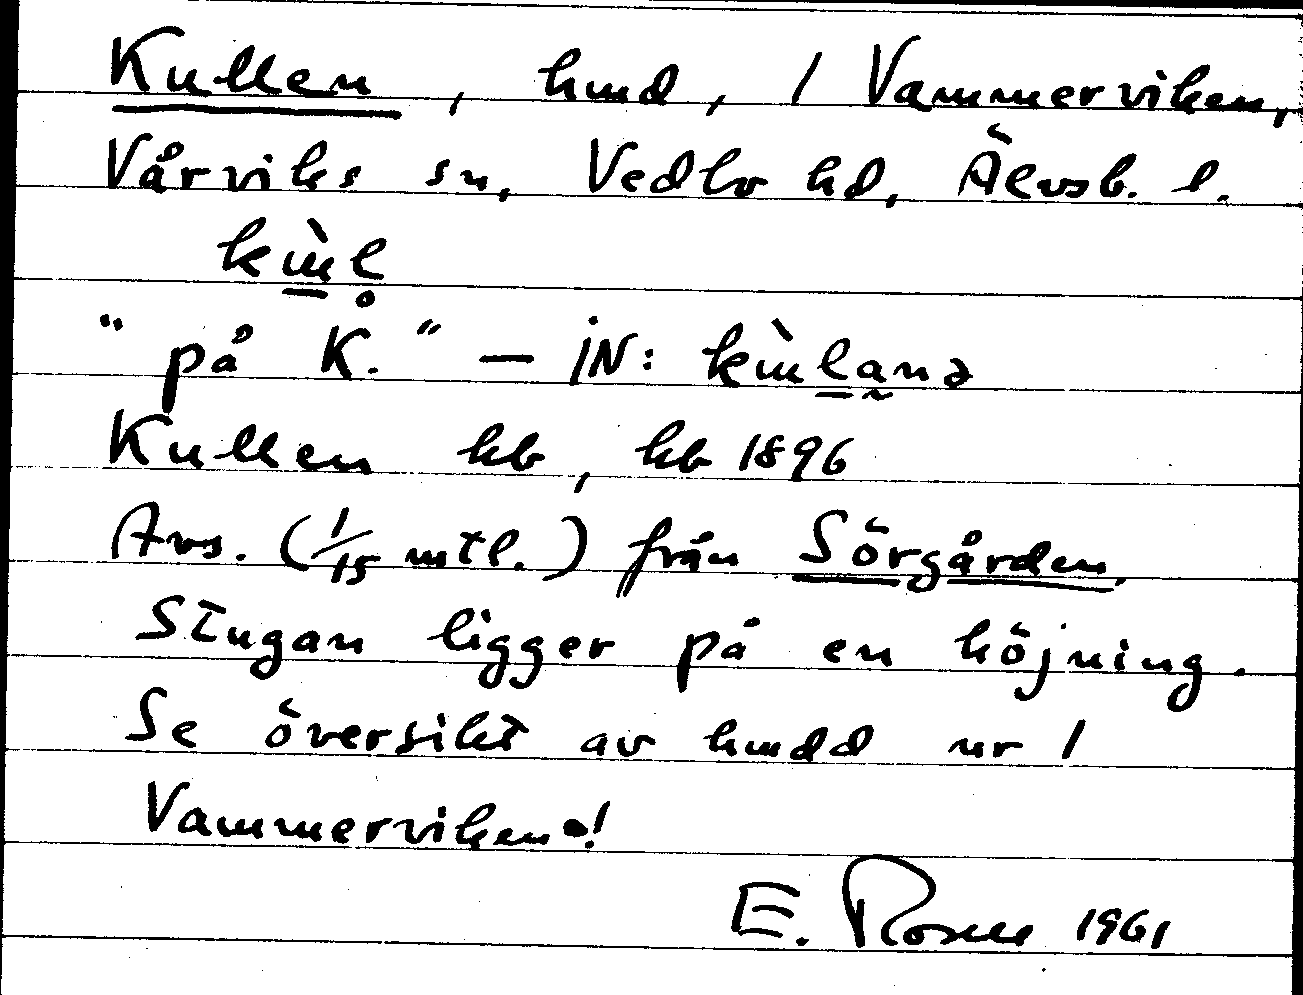 Kullen, hmd, 1 Vammerviken,
Vårviks sn, Vedbo hd, Älvsb. l.
"på K." — iN:
Kullen hb, kb 1896
Avs. (1/15 mtl.) från Sörgården.
Stugan ligger på en höjning.
Se översikt av hmdd nr 1
Vammerviken!
E. 1961